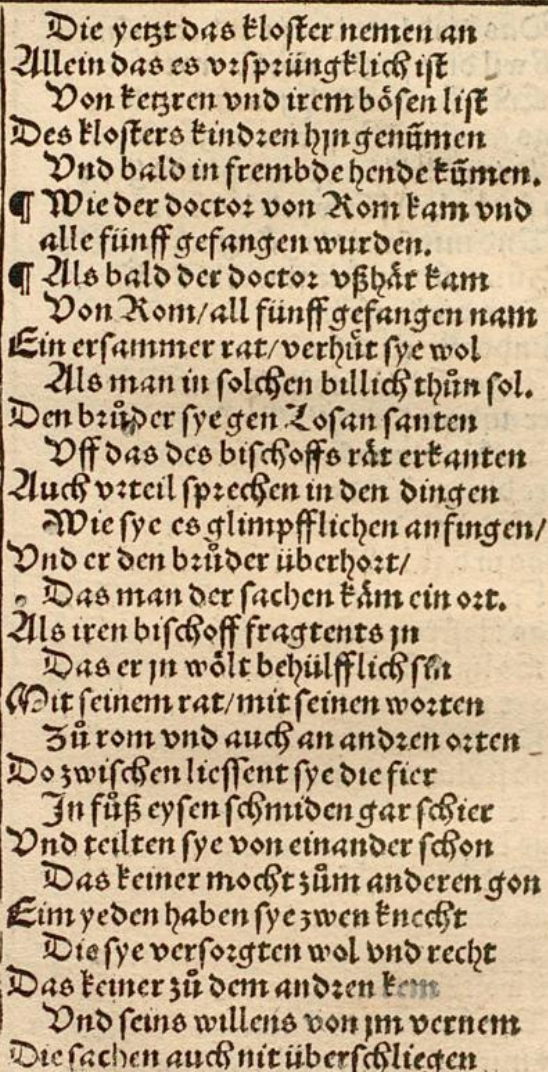 Die yetzt das kloster nemen an
Allein das es vrsprüngklich ist
Von ketzren vnd irem bösen list
Des klosters kindren hyn genūmen
Vnd bald in frembde hende kūmen.
¶ Wie der doctor von Rom kam vnd
alle fünff gefangen wurden.
¶ Als bald der doctor vßhår kam
Von Rom/all fünff gefangen nam
Ein ersammer rat/verhüt sye wol
Als man in solchen billich thůn sol.
Den brůder sye gen Losan santen
Vff das des bischoffs råt erkanten
Auch vrteil sprechen in den dingen
Wie sye es glimpfflichen anfingen/
Vnd er den brůder überhort/
Das man der sachen kåm ein ort.
Als iren bischoff fragtents yn
Das er yn wölt behülfflich sin
Mit seinem rat/mit seinen worten
Zů rom vnd auch an andren orten
Do zwischen liessent sye die fier
In fůß eysen schmiden gar schier
Vnd teilten sye von einander schon
Das keiner mocht zům anderen gon
Eim yeden haben sye zwen knecht
Die sye versorgten wol vnd recht
Das keiner zů dem andren kem
Vnd seins willens von ym vernem
Die sachen auch nit überschliegen